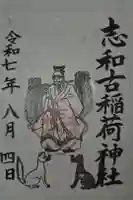 志和古稲荷神社
令和七年八月四日